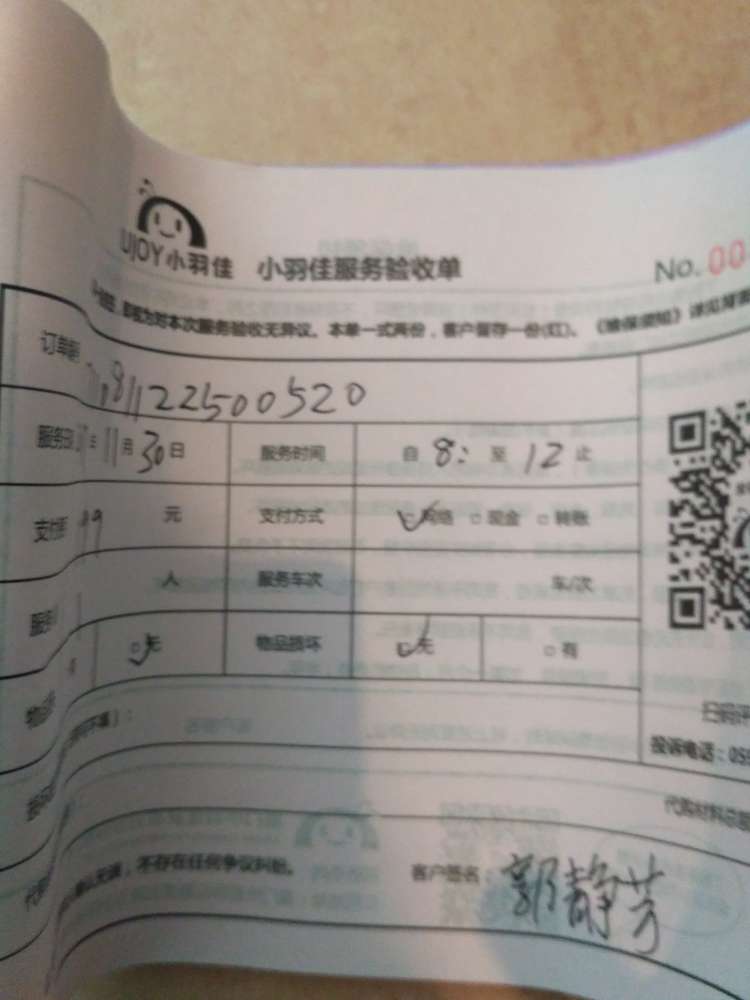 UJOY小羽佳 小羽佳服务验收单 No.00
即视为对本次服务验收无异议。本单一式两份，客户留存一份(红)。《维保须知》详见背面
订单 81122500520
服务 年11月30日 服务时间 自 8: 至 12 止
支付 元 支付方式 网络 现金 转账
服务 人 服务车次 车/次
物品 无 物品损坏 无 有
扫码评
投诉电话:059
代购材料总
确认无误，不存在任何争议纠纷。 客户签名: 郭静芳